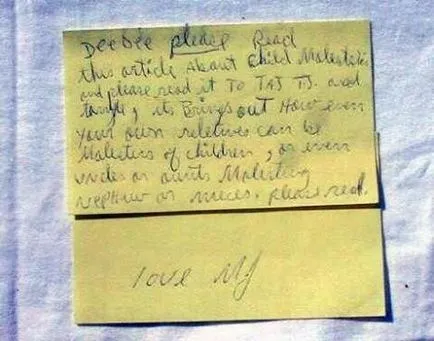 DeeDee please Read
this article About Child Molestation
and please read it TO TAJ TJ. and
, its Brings out How even
your own relatives can be
Molesters of children, or even
uncles or aunts Molesting
nephew or nieces. please read.
love MJ